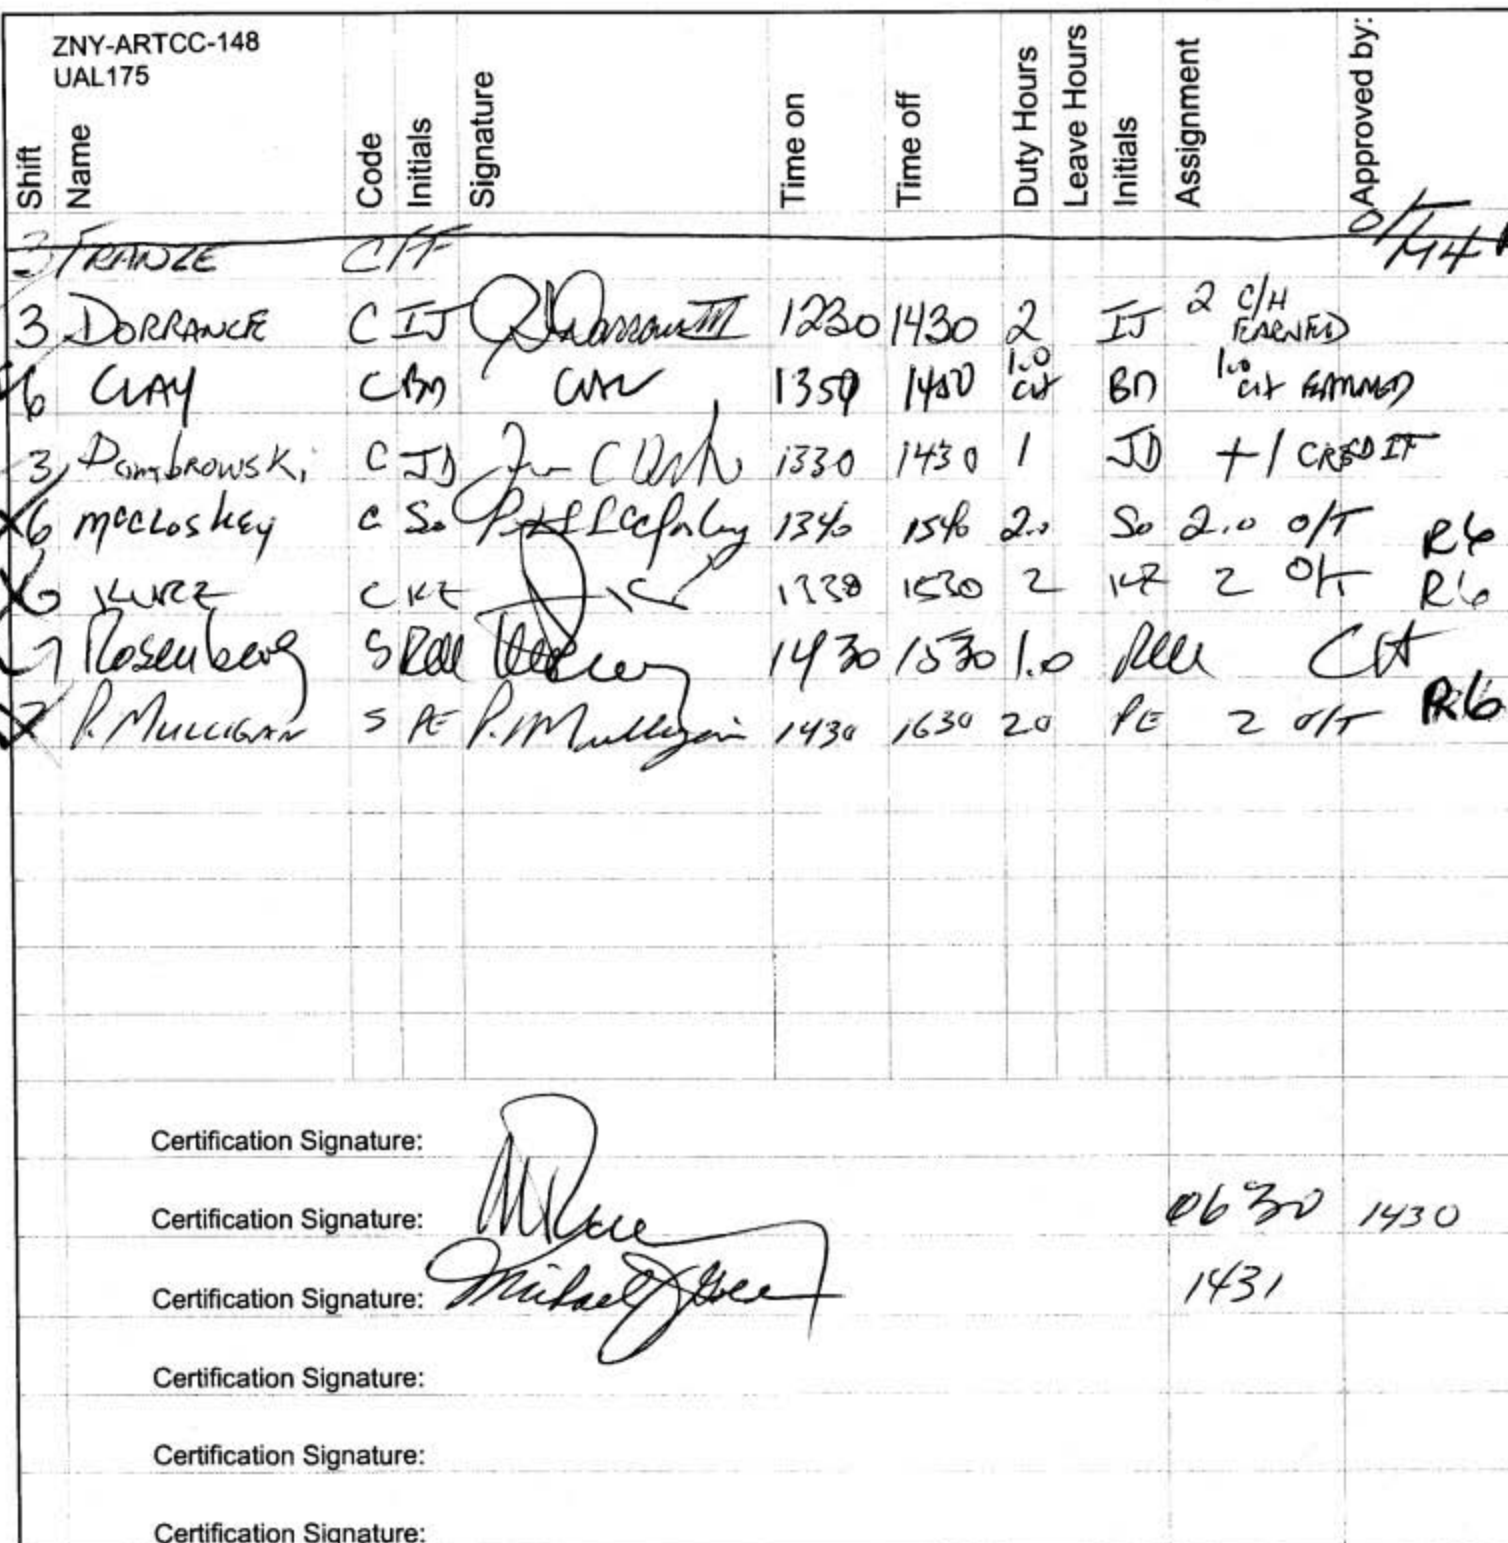 ZNY-ARTCC-148
UAL175
Shift Name Code Initials Signature Time on Time off Duty Hours Leave Hours Initials Assignment Approved by:
3 FRANZE C
O/T
3 DORRANCE C IJ 1230 1430 2 IJ 2 C/H EARNED
6 CLAY C BM 1.0 BM 1.0 EARNED
3 Dombrowski C JD 1330 1430 1 JD +1 CREDIT
6 McCloskey C So 1340 1540 2.0 So 2.0 O/T R6
6 KURZ C KZ 1330 1530 2 KZ 2 O/T R6
7 Rosenberg S 1430 1530 1.0
7 P. MULLIGAN S PE P. Mulligan 1430 1630 2.0 PE 2 O/T R6
Certification Signature:
Certification Signature: 0630 1430
Certification Signature: Michael J 1431
Certification Signature:
Certification Signature:
Certification Signature: